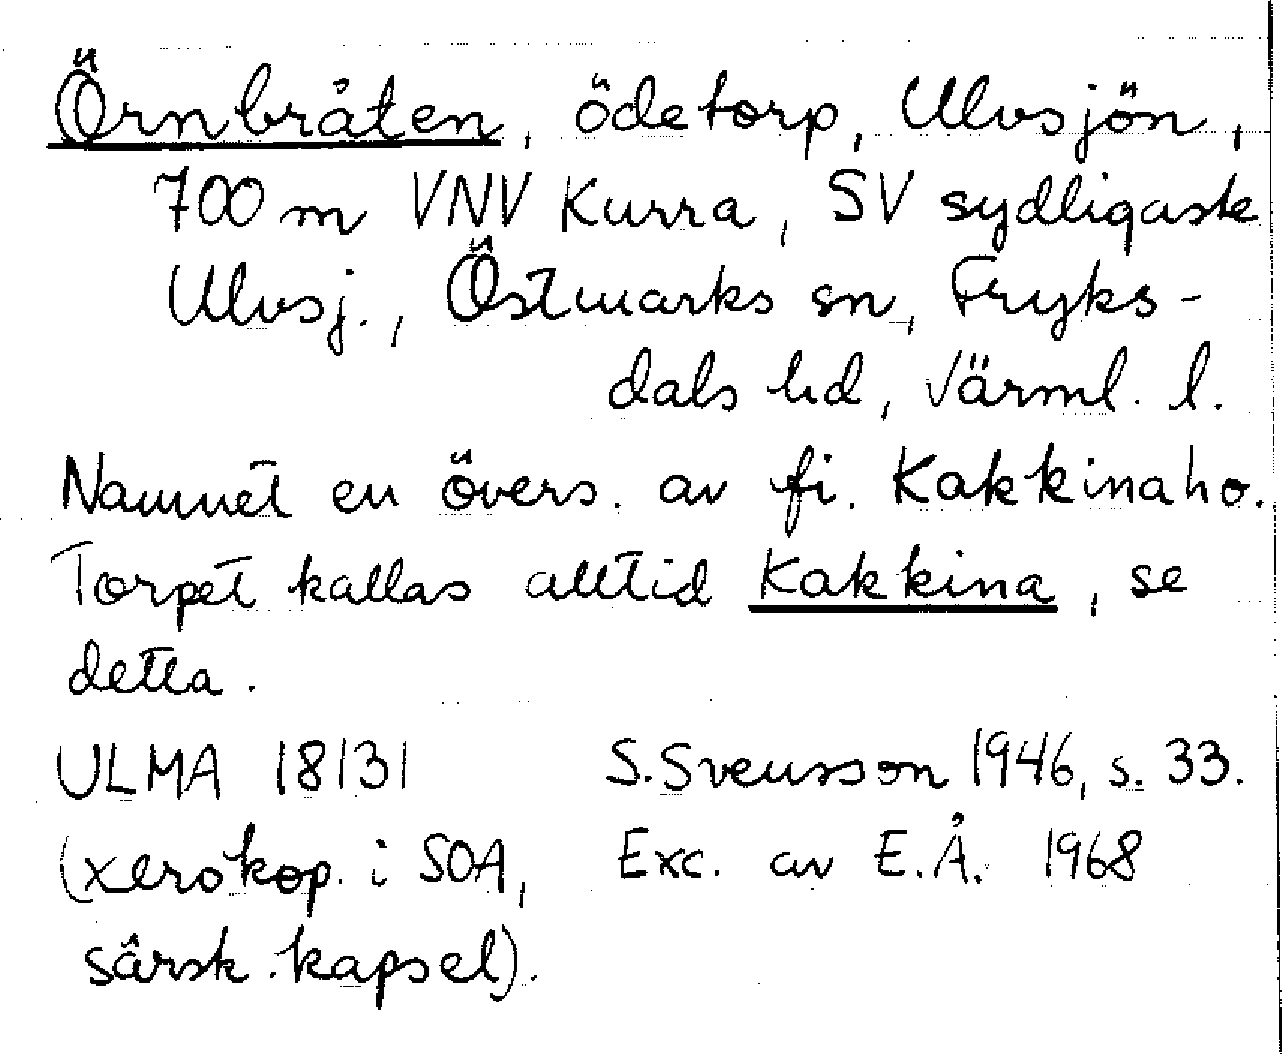 Örnbråten, ödetorp, Ulvsjön,
700 m VNV Kurra, SV sydligaste
Ulvsj., Östmarks sn, Fryks-
dals hd, Värml. l.
Namnet en övers. av fi. Kakkinaho.
Torpet kallas alltid Kakkina, se
detta.
ULMA 18131 S. Svensson 1946, s. 33.
(xerokop. i SOA, Exc. av E.Å. 1968
särsk. kapsel).